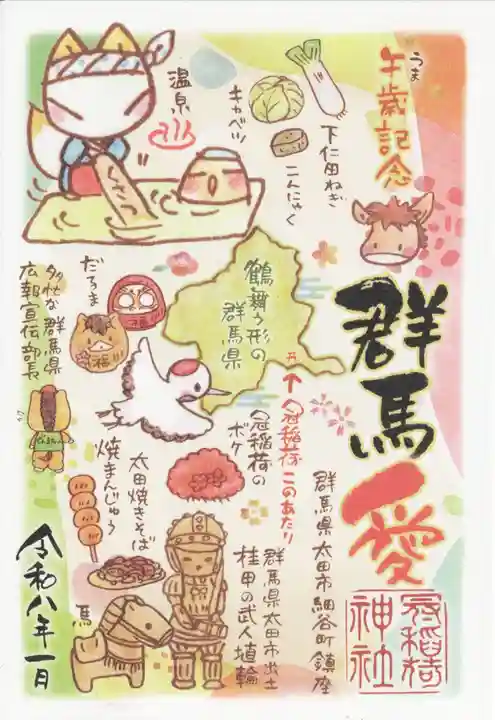 午歳記念
うま
群馬愛
冠稲荷
神社
群馬県太田市細谷町鎮座
下仁田ねぎ
こんにゃく
キャベツ
温泉
くさつ
鶴舞う形の
群馬県
冠稲荷このあたり
冠稲荷の
ボケ
だるま
福
多忙な群馬県
広報宣伝部長
太田焼きそば
焼まんじゅう
群馬県太田市出土
桂甲の武人埴輪
馬
令和八年一月